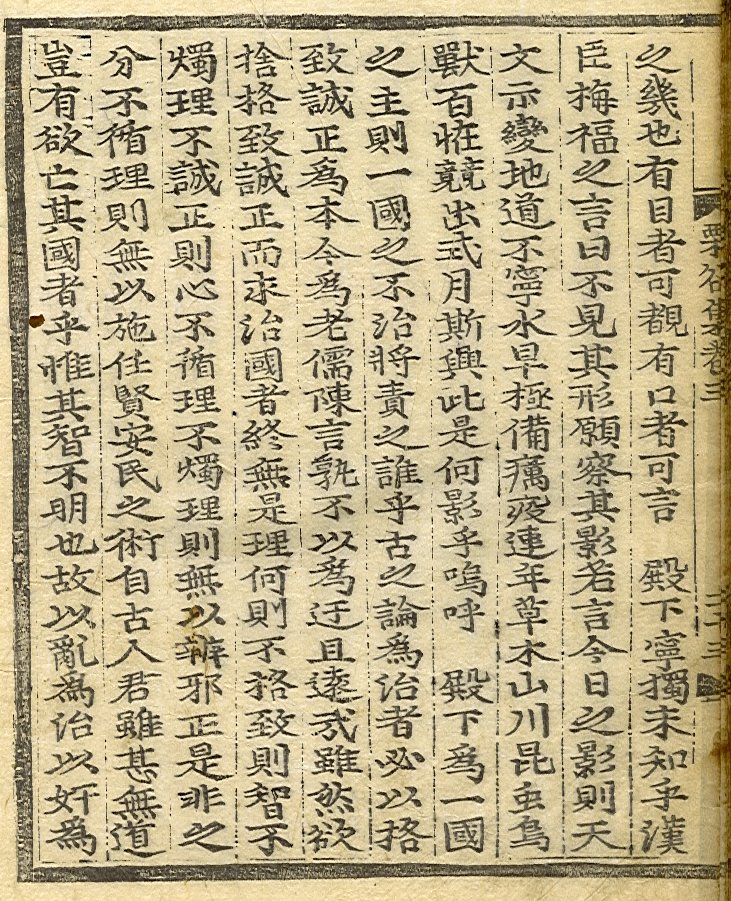 栗谷集卷三
二十三
之幾也有目者可覩有口者可言　殿下寧獨未知乎漢
臣梅福之言曰不見其形願察其影若言今日之影則天
文示變地道不寧水旱極備癘疫連年草木山川昆虫鳥
獸百怪競出式月斯興此是何影乎嗚呼　殿下爲一國
之主則一國之不治將責之誰乎古之論爲治者必以格
致誠正爲本今爲老儒陳言孰不以爲迂且遠哉雖然欲
捨格致誠正而求治國者終無是理何則不格致則智不
燭理不誠正則心不循理不燭理則無以辨邪正是非之
分不循理則無以施任賢安民之術自古人君雖甚無道
豈有欲亡其國者乎惟其智不明也故以亂爲治以奸爲